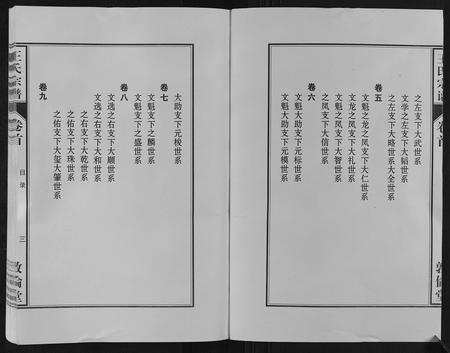 王氏宗谱
卷首
敦伦堂
之左支下大武世系
文学之左支下大韬世系
文魁左支下大略世系大全世系
卷五
文魁之龙之凤支下大仁世系
文龙之凤支下大礼世系
文魁之凤支下大智世系
之凤支下大信世系
卷六
文魁大助支下元标世系
文魁大助支下元模世系
大助支下元梭世系
卷七
文魁支下之麟世系
文魁支下之盛世系
卷八
文选之右支下大顺世系
文选之右支下大和世系
之右支下大乾世系
之佑支下大珠世系
之佑支下大玺大肇世系
卷九
王氏宗谱
卷首
目录
三
敦伦堂